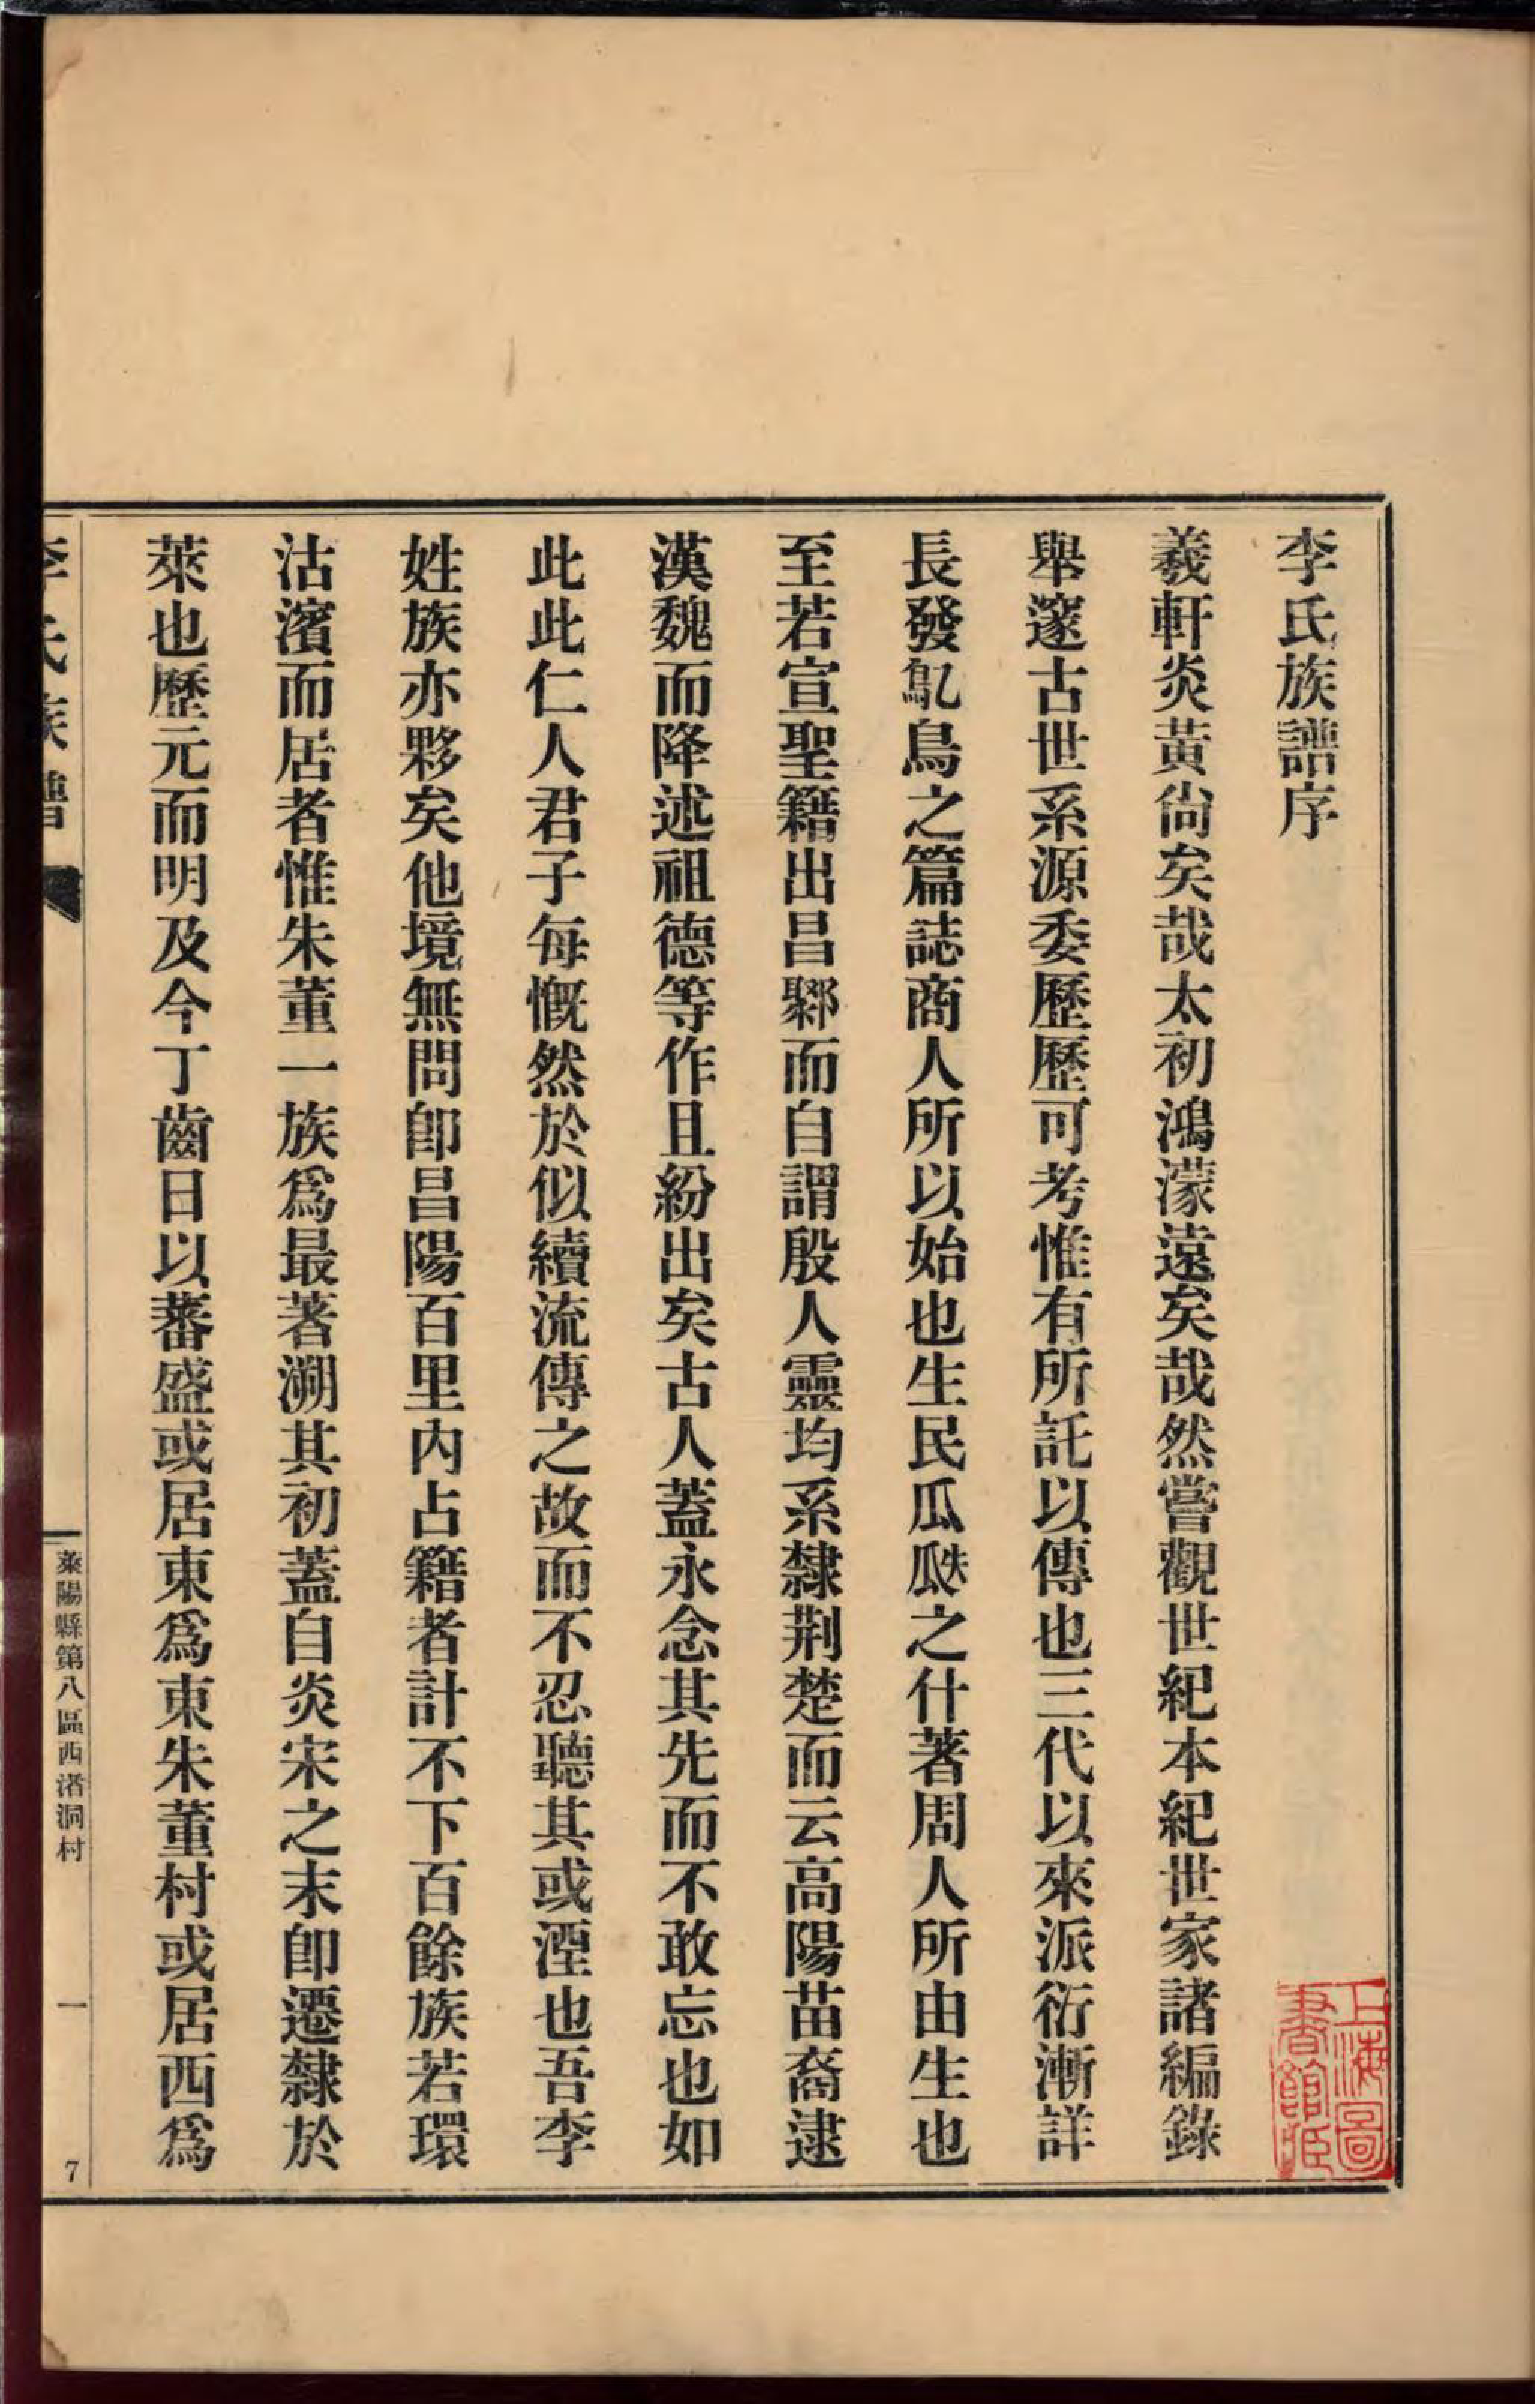 李氏族譜序
羲軒炎黃尙矣哉太初鴻濛遠矣哉然嘗觀世紀本紀世家諸編錄
舉邃古世系源委歷歷可考惟有所託以傳也三代以來派衍漸詳
長發鳦鳥之篇誌商人所以始也生民瓜瓞之什著周人所由生也
至若宣聖籍出昌鄹而自謂殷人靈均系隸荆楚而云高陽苗裔逮
漢魏而降述祖德等作且紛出矣古人蓋永念其先而不敢忘也如
此此仁人君子每慨然於似續流傳之故而不忍聽其或湮也吾李
姓族亦夥矣他境無問卽昌陽百里內占籍者計不下百餘族若環
沽濱而居者惟朱董一族爲最著溯其初蓋自炎宋之末卽遷隸於
萊也歷元而明及今丁齒日以蕃盛或居東爲東朱董村或居西爲
李氏族譜
萊陽縣第八區西渚洞村
一
7
上海圖
書館藏